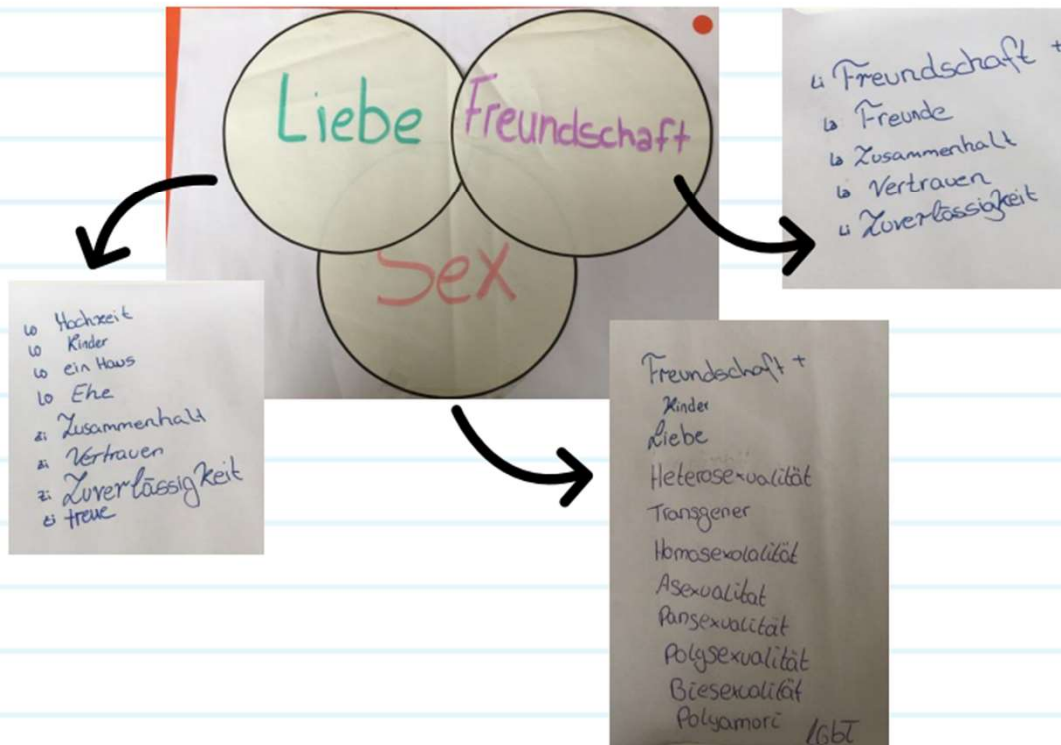 Liebe
Freundschaft
Sex
Freundschaft +
Freunde
Zusammenhalt
Vertrauen
Zuverlässigkeit
Hochzeit
Kinder
ein Haus
Ehe
Zusammenhalt
Vertrauen
Zuverlässigkeit
treue
Freundschaft +
Kinder
Liebe
Heterosexualität
Transgener
Homosexolalität
Asexualitat
Pansexualität
Polysexualität
Biesexalität
Polyamori
LGbT